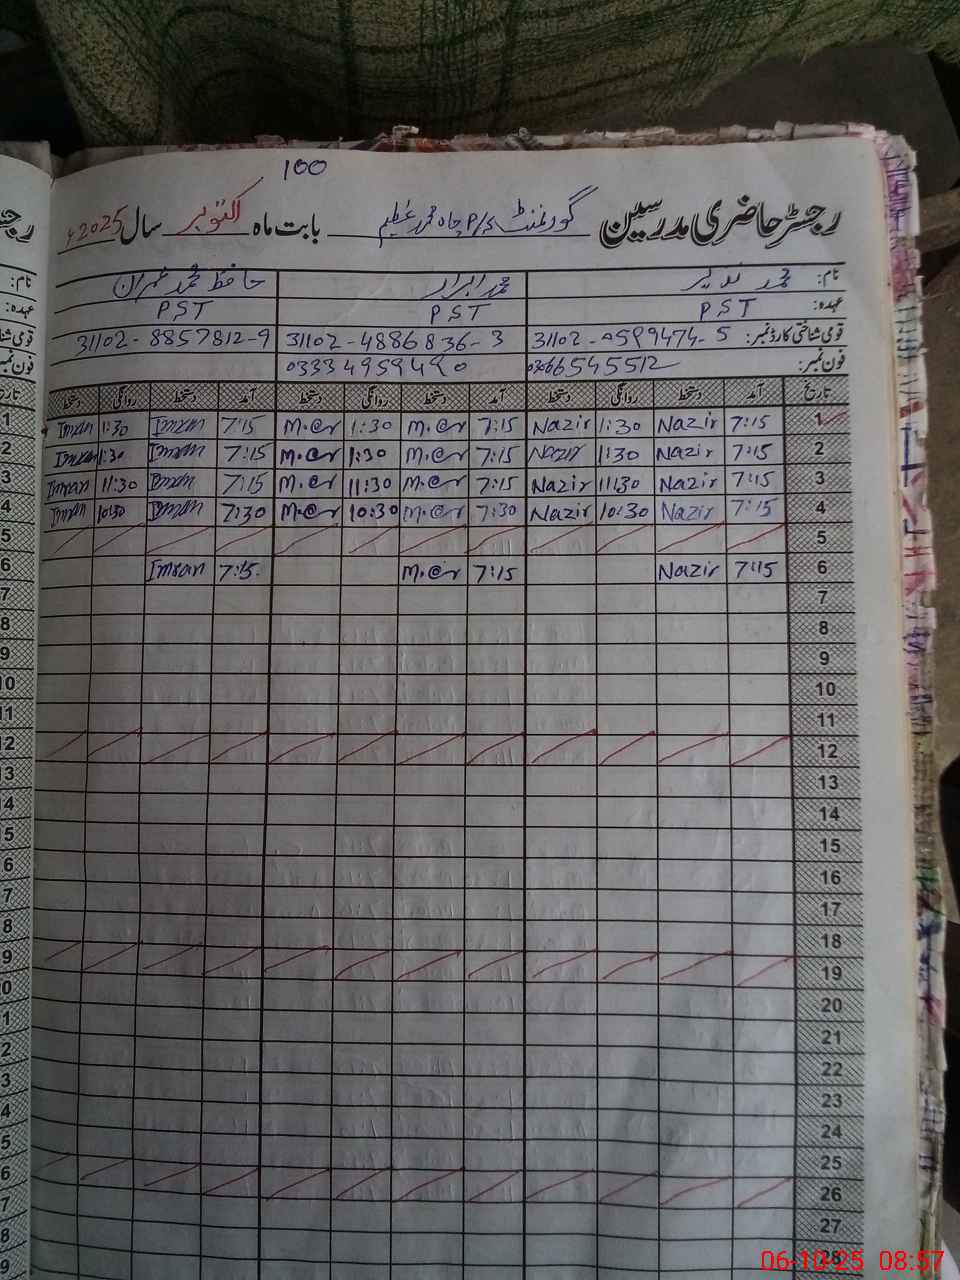 100
رجسٹر حاضری مدرسین گورنمنٹ P/S چاہ محمد عظیم بابت ماہ اکتوبر سال 2025ء
نام: محمد نذیر محمد ابرار حافظ محمد عمران
عہدہ: PST PST PST
قومی شناختی کارڈ نمبر: 31102-0599474-5 31102-4886836-3 31102-8857812-9
فون نمبر: 03066545512 03334959490
تاریخ آمد دستخط روانگی دستخط آمد دستخط روانگی دستخط آمد دستخط روانگی دستخط
1 7:15 Nazir 1:30 Nazir 7:15 M.@r 1:30 M.@r 7:15 Imran 1:30 Imran
2 7:15 Nazir 1:30 Nazir 7:15 M.@r 1:30 M.@r 7:15 Imran 1:30 Imran
3 7:15 Nazir 11:30 Nazir 7:15 M.@r 11:30 M.@r 7:15 Imran 11:30 Imran
4 7:15 Nazir 10:30 Nazir 7:30 M.@r 10:30 M.@r 7:30 Imran 10:30 Imran
5
6 7:15 Nazir 7:15 M.@r 7:15 Imran
7
8
9
10
11
12
13
14
15
16
17
18
19
20
21
22
23
24
25
26
27
28
06-10-25 08:57